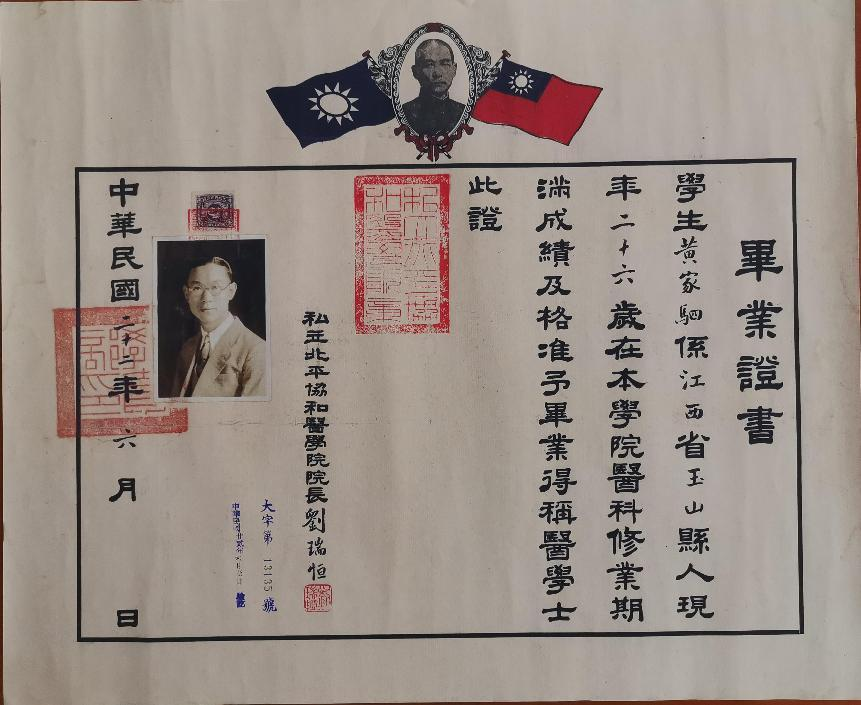 畢業證書
學生黃家駟係江西省玉山縣人現
年二十六歲在本學院醫科修業期
滿成績及格准予畢業得稱醫學士
此證
私立北平協和醫學院院長劉瑞恒
大字第 13135 號
中華民國二十二年六月 日